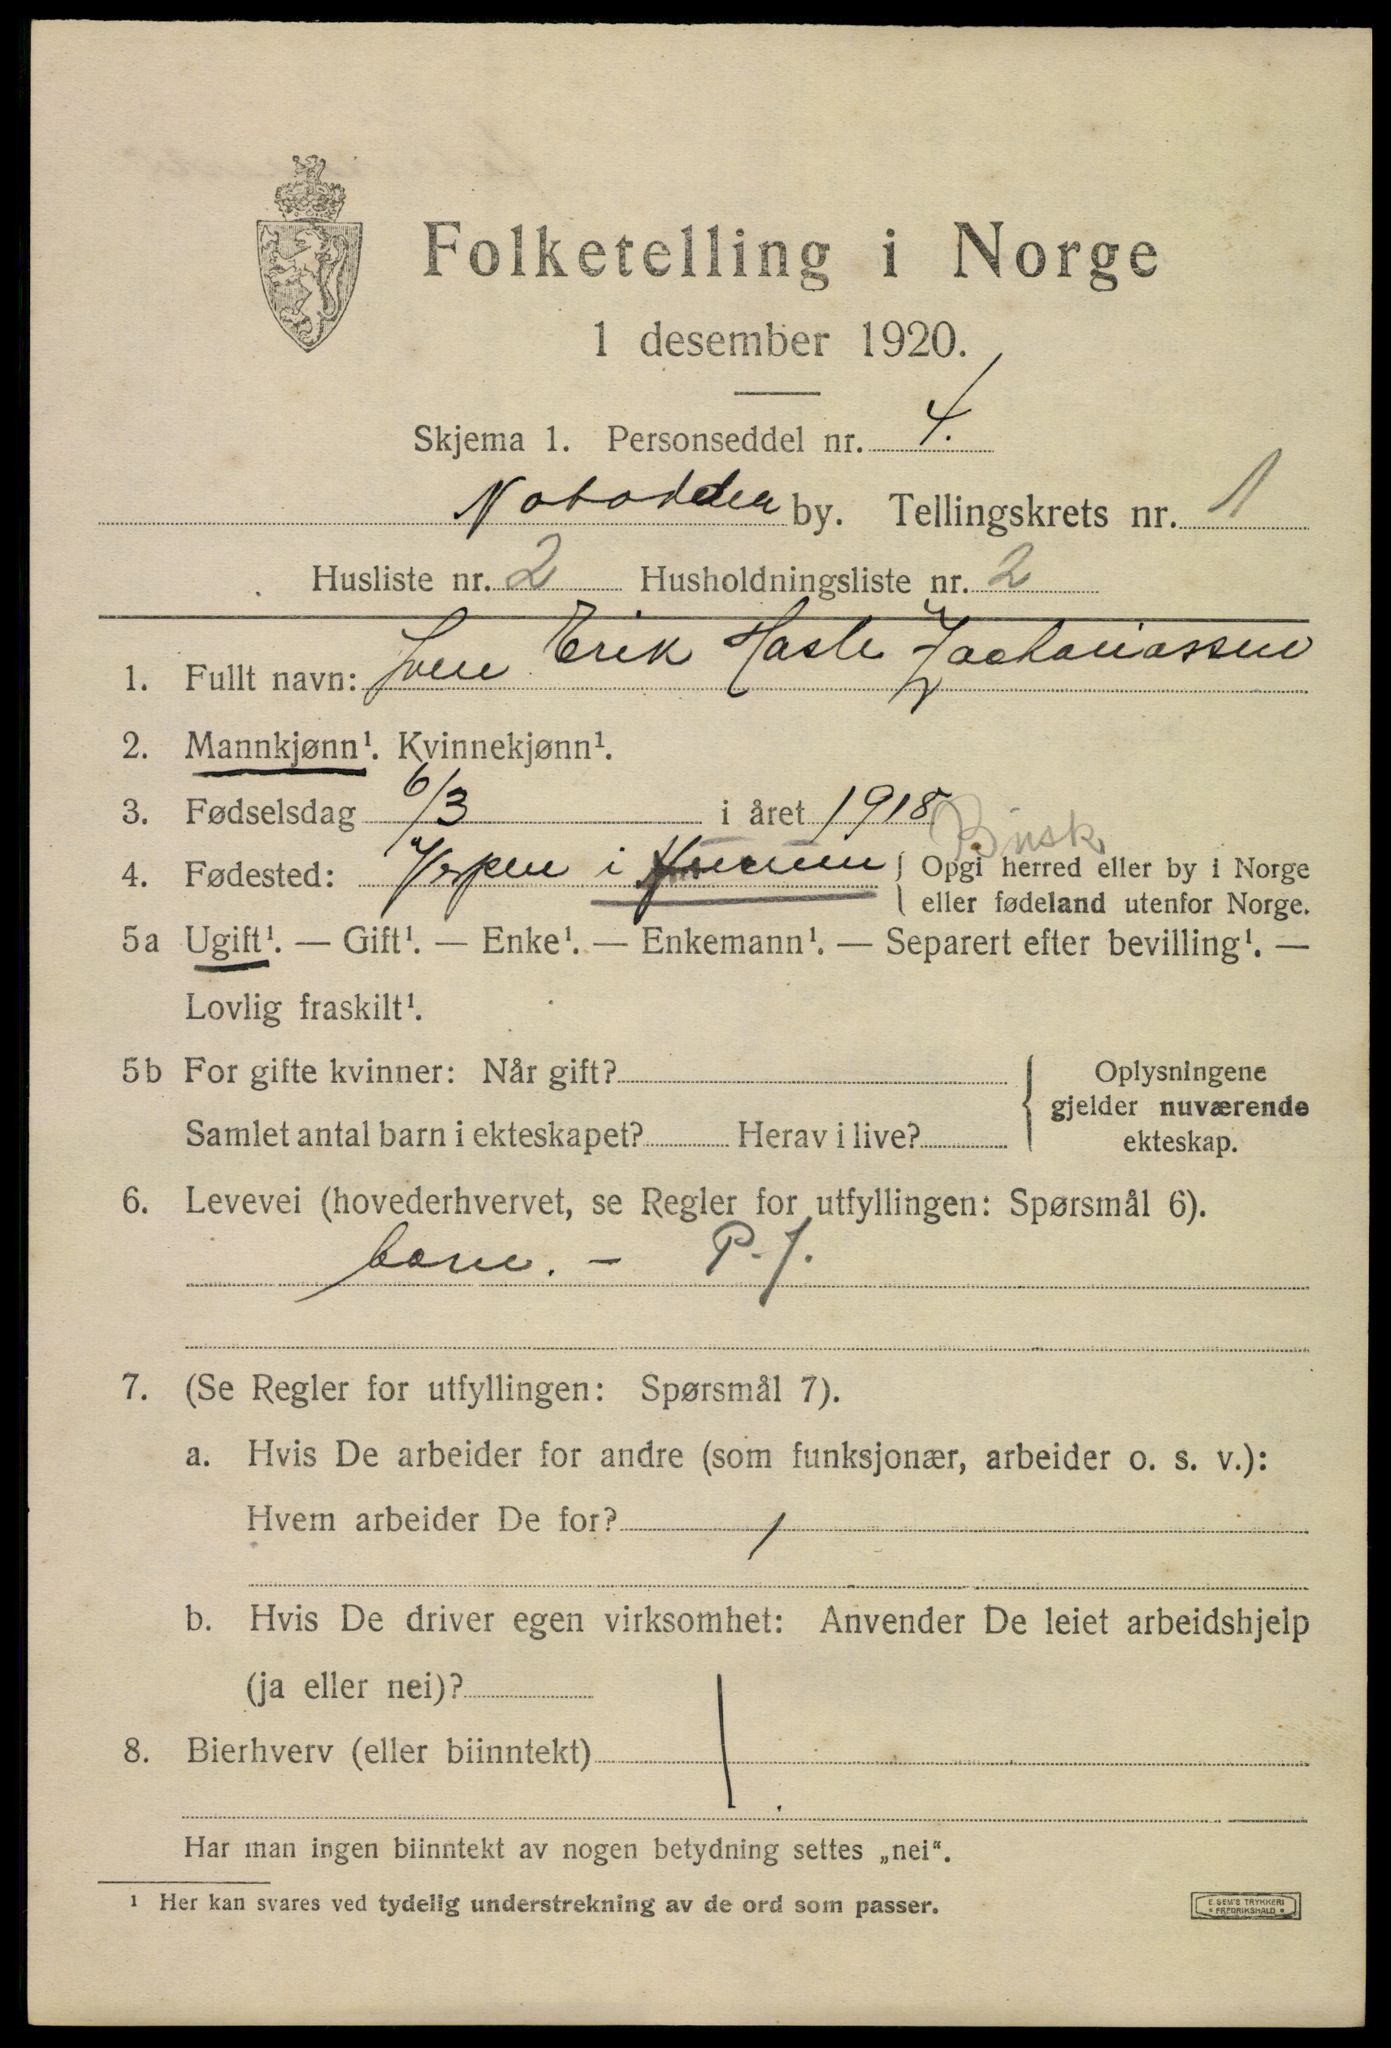 Folketelling i Norge
1 desember 1920.
Skjema 1. Personseddel nr. 4.
Notodden by. Tellingskrets nr. 1
Husliste nr. 2 Husholdningsliste nr. 2
1. Fullt navn: Sven Erik Hasle Zachariassen
2. Mannkjønn¹. Kvinnekjønn¹.
3. Fødselsdag 6/3 i året 1918
Busk
4. Fødested: Vespen i { Opgi herred eller by i Norge
eller fødeland utenfor Norge.
5a Ugift¹. — Gift¹. — Enke¹. — Enkemann¹. — Separert efter bevilling¹. —
Lovlig fraskilt¹.
5b For gifte kvinner: Når gift?
Samlet antal barn i ekteskapet? Herav i live?
{ Oplysningene
gjelder nuværende
ekteskap.
6. Levevei (hovederhvervet, se Regler for utfyllingen: Spørsmål 6).
barn. — P.f.
7. (Se Regler for utfyllingen: Spørsmål 7).
a. Hvis De arbeider for andre (som funksjonær, arbeider o. s. v.):
Hvem arbeider De for? /
b. Hvis De driver egen virksomhet: Anvender De leiet arbeidshjelp
(ja eller nei)?
8. Bierhverv (eller biinntekt)
Har man ingen biinntekt av nogen betydning settes „nei“.
¹ Her kan svares ved tydelig understrekning av de ord som passer.
E. SEM'S TRYKKERI
* FREDRIKSHALD *